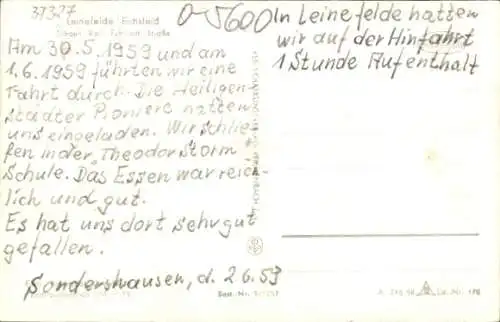 37327
Leinefelde Eichsfeld
0-5600
Am 30.5.1959 und am
1.6.1959 führten wir eine
Fahrt durch. Die Heiligen-
städter Pioniere hatten
uns eingeladen. Wir schlie-
fen in der „Theodor Storm"
Schule. Das Essen war reich-
lich und gut.
Es hat uns dort sehr gut
gefallen.
Sondershausen, d. 2.6.59
In Leinefelde hatten
wir auf der Hinfahrt
1 Stunde Aufenthalt
Best.-Nr.